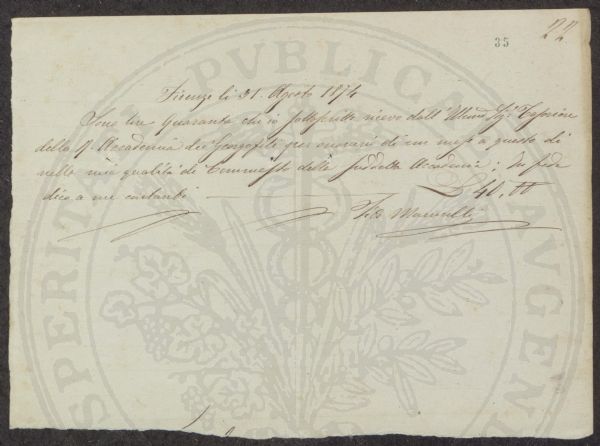 35
22
Firenze li 31. Agosto 1874
Sono lire quaranta che io sottoscritto ricevo dall' Illmo Sig: Tesoriere
della R. Accademia dei Georgofili per onorari di un mese a questo dì
nella mia qualità di Commesso della suddetta Accademia; In fede
dico a me contanti
£ 40. 00
PROSPERITATI PUBLICAE AUGENDAE